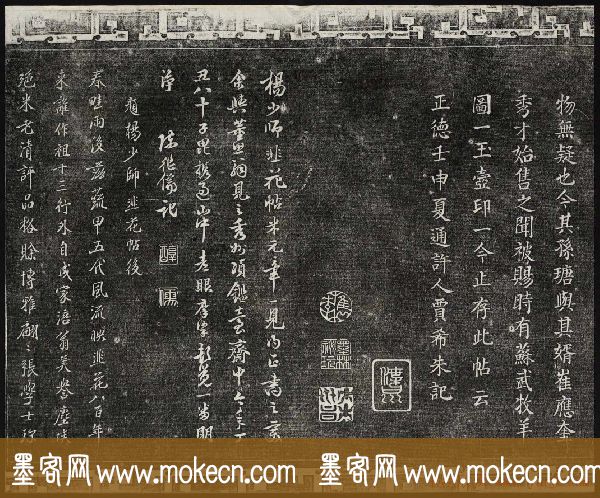 物無疑也今其孫瑭與其婿崔應奎
秀才始售之聞被賜時有蘇武牧羊
圖一玉壺印一今止存此帖云
正德壬申夏通許人賈希朱記
楊少師韭花帖米元章一見內正書之
余與董思翁見之秀州項鑑臺齋中今
丑八十子毘携過山中老眼摩挲都覺一
陳繼儒記
題楊少師韭花帖後
春畦雨後茁蔬甲五代風流映韭花八百年
來離作祖十三行外自成家涪翁美譽
絶米老清評品格賒博雅翩翩張學士
墨客网 www.mokecn.com 墨客网 www.mokecn.com